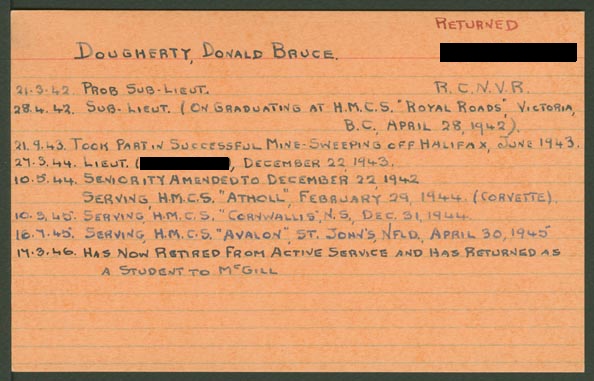 RETURNED
DOUGHERTY, DONALD BRUCE.
21-3-42. PROB SUB-LIEUT. R.C.N.V.R.
28.4.42. SUB-LIEUT. (ON GRADUATING AT H.M.C.S. "ROYAL ROADS", VICTORIA,
B.C., APRIL 28, 1942).
21.9.43. TOOK PART IN SUCCESSFUL MINE-SWEEPING OFF HALIFAX, JUNE 1943.
27.3.44. LIEUT. ( ), DECEMBER 22, 1943.
10.5.44. SENIORITY AMENDED TO DECEMBER 22, 1942
SERVING, H.M.C.S. "ATHOLL", FEBRUARY 29, 1944. (CORVETTE).
10.3.45. SERVING, H.M.C.S. "CORNWALLIS", N.S., DEC. 31, 1944.
16.7.45. SERVING, H.M.C.S. "AVALON", ST. JOHN'S, NFLD., APRIL 30, 1945
17.3.46. HAS NOW RETIRED FROM ACTIVE SERVICE AND HAS RETURNED AS
A STUDENT TO MCGILL